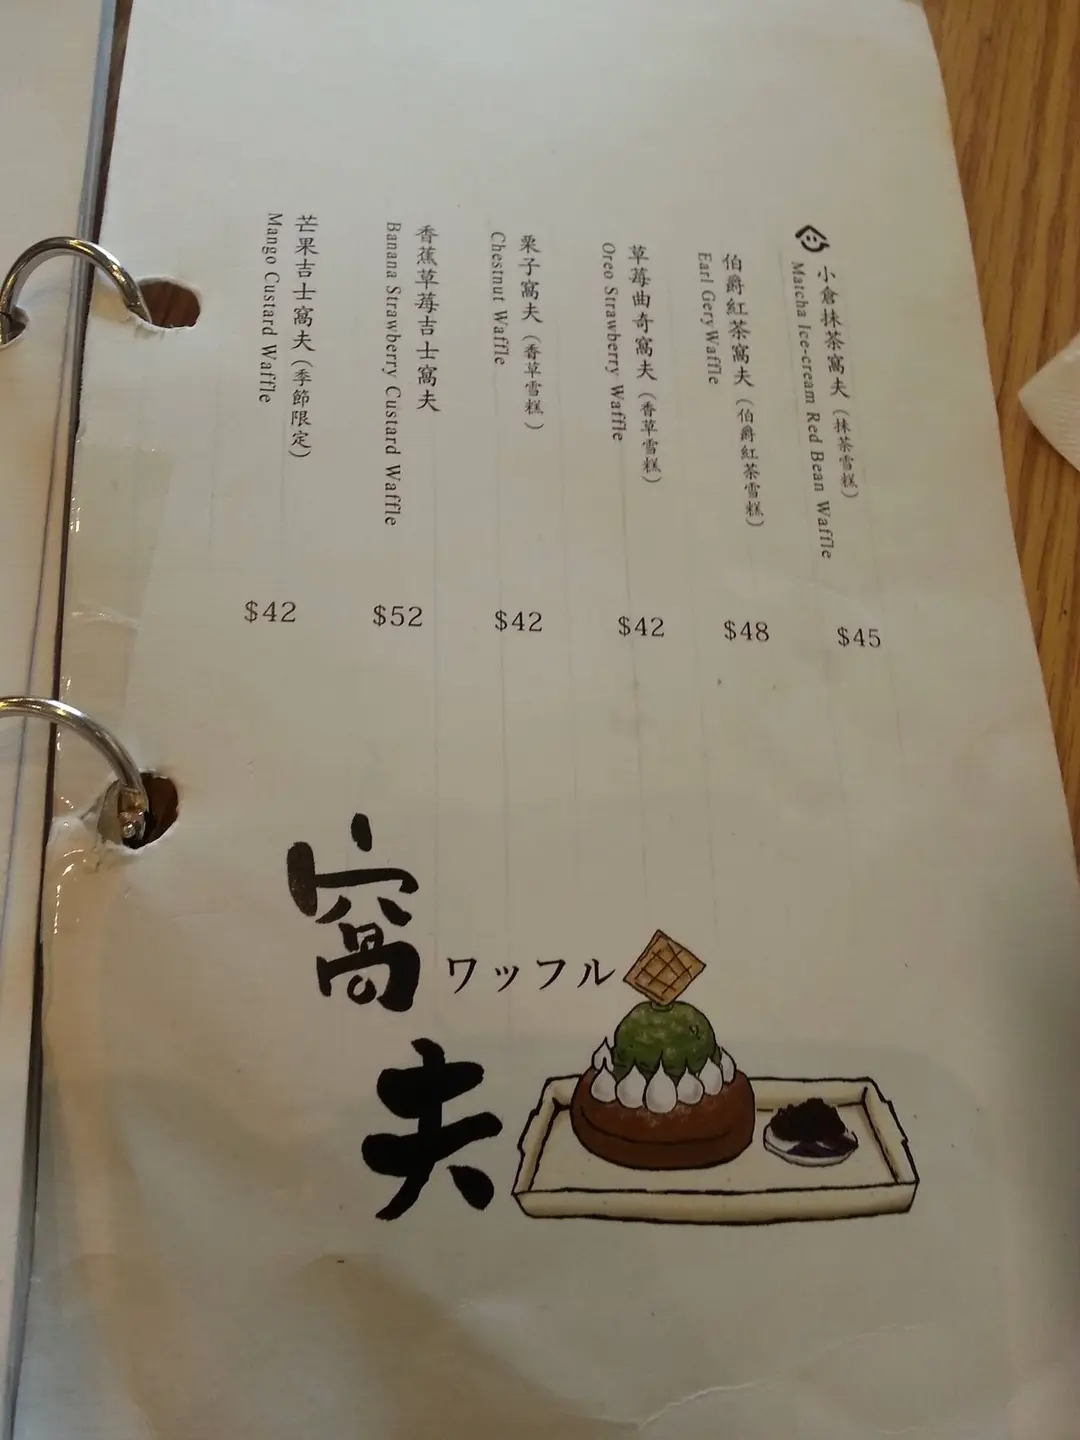 小倉抹茶窩夫（抹茶雪糕）
Matcha Ice-cream Red Bean Waffle
$45
伯爵紅茶窩夫（伯爵紅茶雪糕）
Earl Gery Waffle
$48
草莓曲奇窩夫（香草雪糕）
Oreo Strawberry Waffle
$42
栗子窩夫（香草雪糕）
Chestnut Waffle
$42
香蕉草莓吉士窩夫
Banana Strawberry Custard Waffle
$52
芒果吉士窩夫（季節限定）
Mango Custard Waffle
$42
窩夫
ワッフル